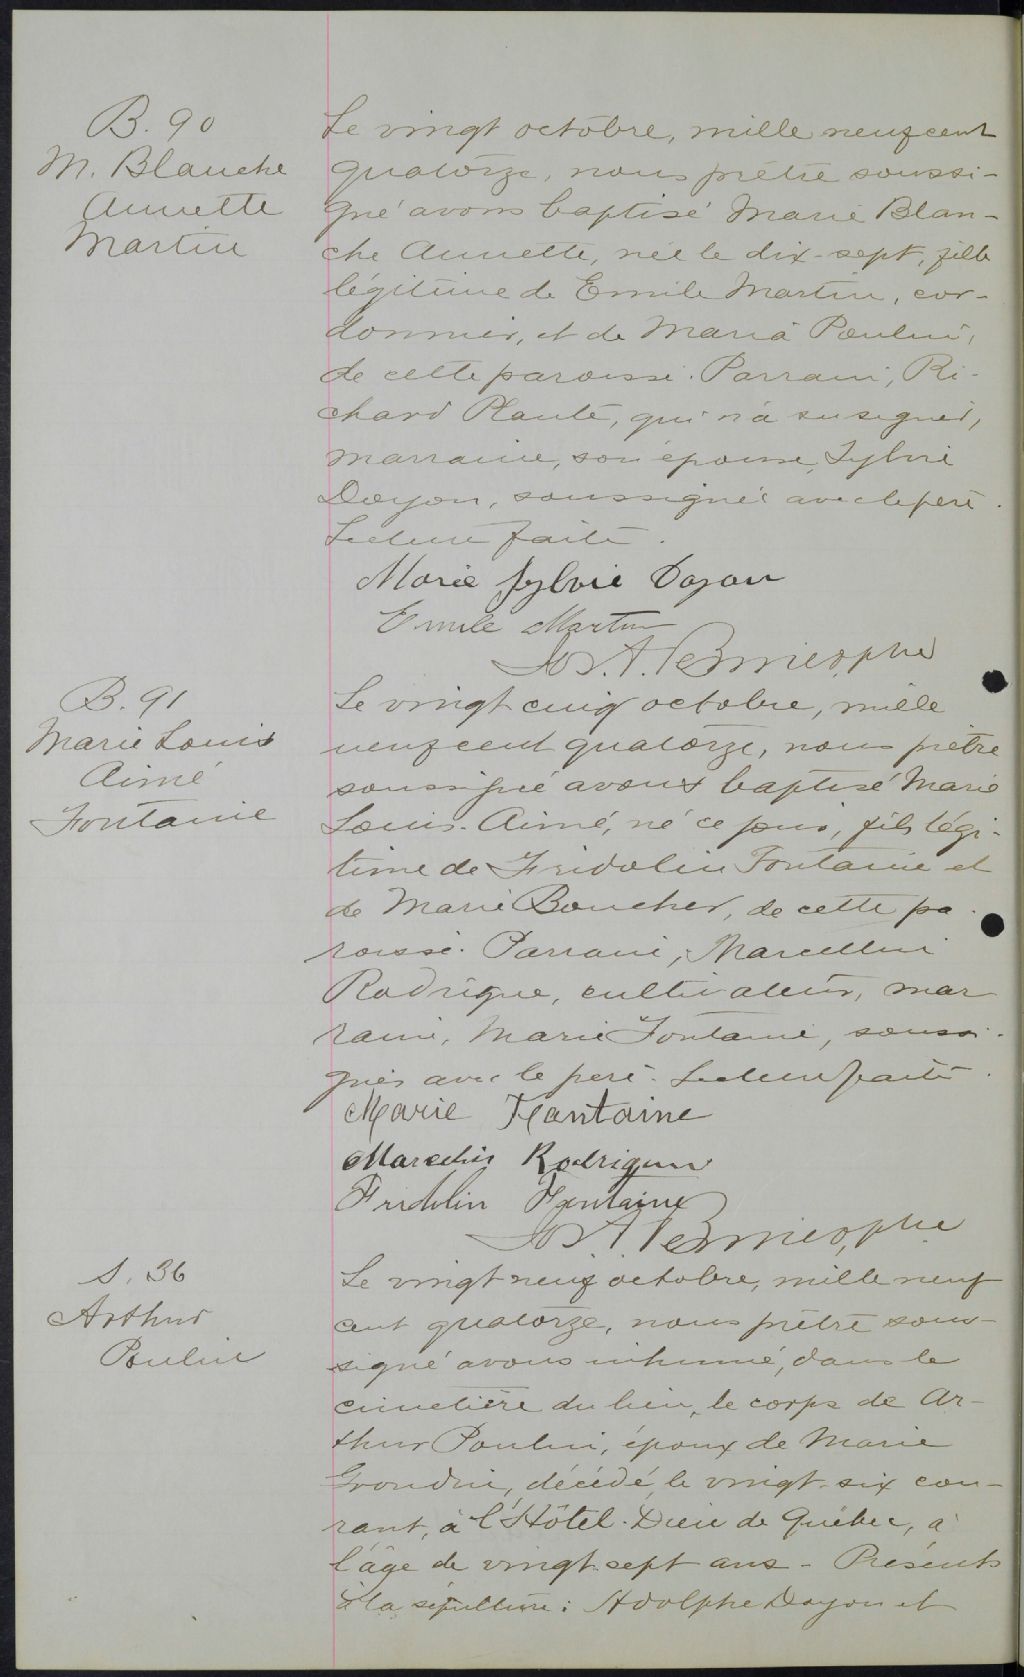 B. 90
M. Blanche
Annette
Martin
Le vingt octobre, mille neuf cent
quatorze, nous prêtre soussi-
gné avons baptisé Marie Blan-
che Annette, née le dix-sept, fille
légitime de Emile Martin, cor-
donnier, et de Maria Poulin,
de cette paroisse. Parrain, Ri-
chard Plante, qui n'a su signer,
marraine, son épouse, Sylvie
Doyon, soussignée avec le père.
Lecture faite.
Marie Sylvie Doyon
Emile Martin
Jos. A. Bernier, ptre
B. 91
Marie Louis
Aimé
Fontaine
Le vingt cinq octobre, mille
neuf cent quatorze, nous prêtre
soussigné avons baptisé Marie
Louis-Aimé, né ce jour, fils légi-
time de Fridolin Fontaine et
de Marie Boucher, de cette pa-
roisse. Parrain, Marcellin
Rodrigue, cultivateur, mar-
raine, Marie Fontaine, soussi-
gnés avec le père. Lecture faite.
Marie Fontaine
Marcelin Rodrigue
Fridolin Fontaine
Jos. A. Bernier, ptre
S. 36
Arthur
Poulin
Le vingt neuf octobre, mille neuf
cent quatorze, nous prêtre sous-
signé avons inhumé, dans le
cimetière du lieu, le corps de Ar-
thur Poulin, époux de Marie
Grondin, décédé, le vingt-six cou-
rant, à l'Hôtel-Dieu de Québec, à
l'âge de vingt-sept ans - Présents
à la sépulture: Adolphe Doyon et